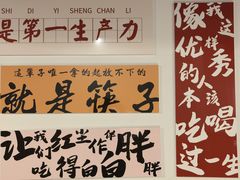 SHI DI YI SHENG CHAN LI
是第一生产力
这辈子唯一拿的起放不下的
就是筷子
让我们红尘作伴
吃得白白胖胖
像我这样
优秀的人
本该吃喝
过一生